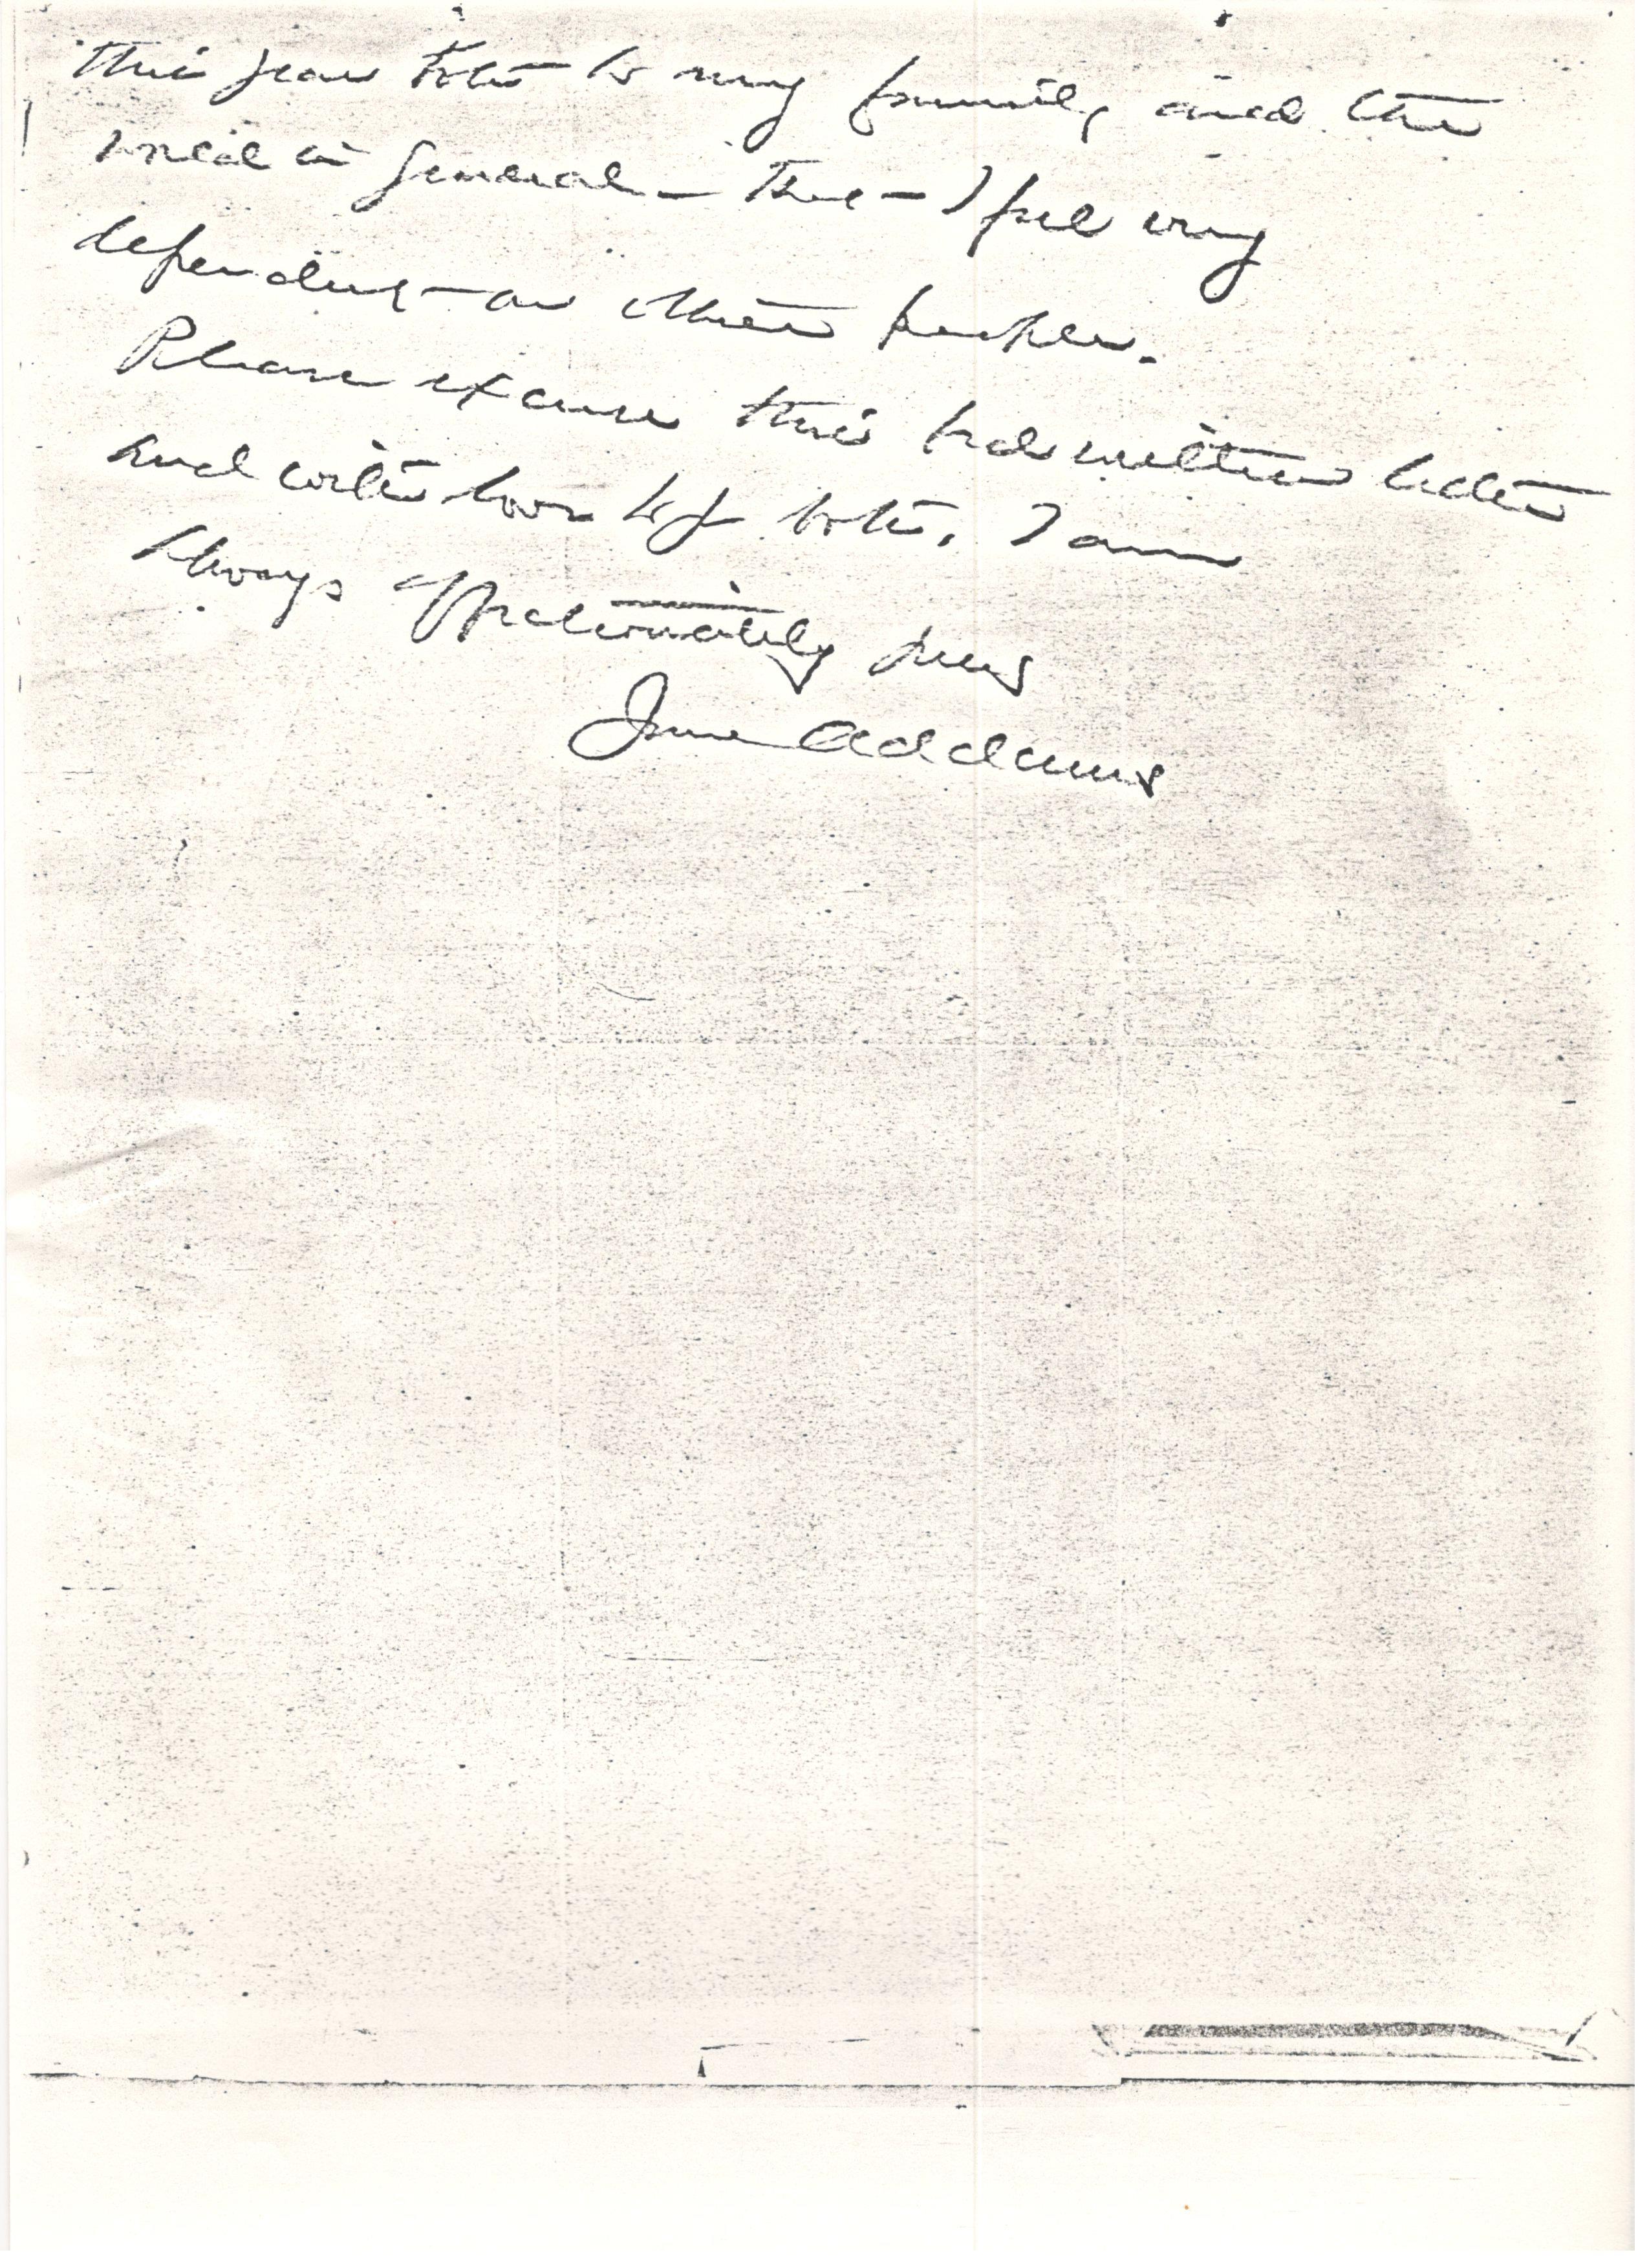 this year both to my family and the
world in general — that — I feel very
dependent on other people.
Please excuse this bad written letter
and with love to you both, I am
Always affectionately yours
Jane Addams